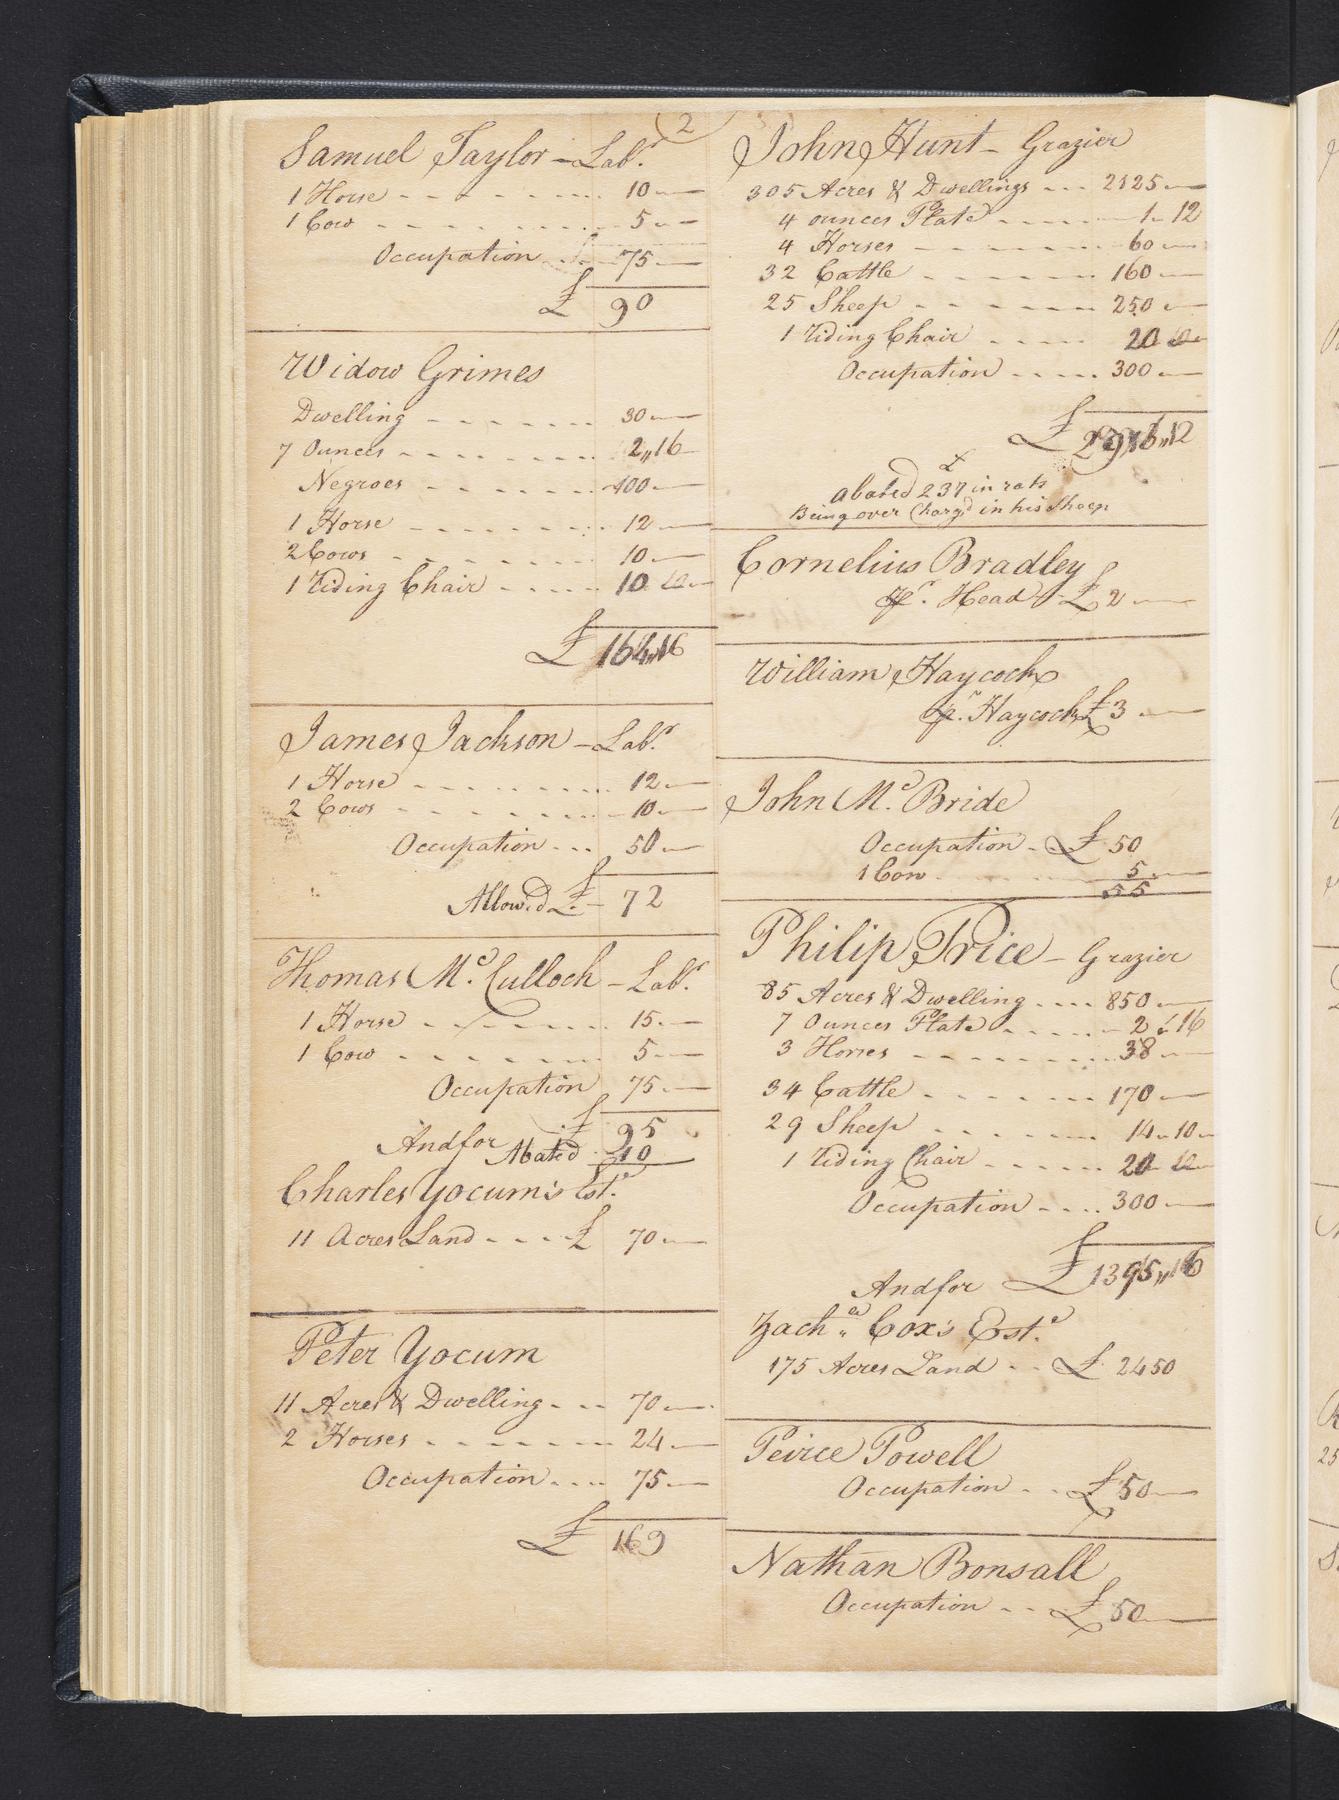 2
Samuel Taylor – Labr.
1 Horse - - - - - - 10 —
1 Cow - - - - - - 5 —
Occupation - - - 75 —
£ 90
Widow Grimes
Dwelling - - - - - - 30 —
7 Ounces - - - - - - 2,,16 –
Negroes - - - - - - 100 —
1 Horse - - - - - - 12 —
2 Cows - - - - - - 10 —
1 Riding Chair - - - - - 10
£ 164,,16
James Jackson – Labr.
1 Horse - - - - - - 12 —
2 Cows - - - - - - 10 —
Occupation - - - 50 —
Allow.d £ – 72
Thomas Mc. Culloch – Labr.
1 Horse - - - - - - 15 —
1 Cow - - - - - - 5 —
Occupation 75 —
£ 95
And for Abated 10
Charles Yocum's Este.
11 Acres Land - - - - £ 70 —
Peter Yocum
11 Acres & Dwelling - - - 70 —
2 Horses - - - - - - 24 —
Occupation - - - - 75 —
£ 169
John Hunt – Grazier
305 Acres & Dwellings - - - 2125 —
4 ounces Plate - - - - - 1 – 12
4 Horses - - - - - - 60 —
32 Cattle - - - - - - 160 —
25 Sheep - - - - - - 250 —
1 Riding Chair - - - - 20
Occupation - - - - 300 —
£ 2916,,12
£
abated 237 in rats
Being over Charg'd in his Sheep
Cornelius Bradley
pr. Head £ 2 —
William Haycock
pr. Haycock £ 3 —
John Mc. Bride
Occupation - £ 50
1 Cow - - - - 5 —
55
Philip Price – Grazier
85 Acres & Dwelling - - - - 850 —
7 Ounces Plate - - - - - 2 ,, 16
3 Horses - - - - - - 38 —
34 Cattle - - - - - - 170 —
29 Sheep - - - - - - 14 – 10 –
1 Riding Chair - - - - - - 20
Occupation - - - - 300 —
£ 1395,,16
And for
Zacha. Cox's Este.
175 Acres Land - - £ 2450
Peirce Powell
Occupation - - £ 50 —
Nathan Bonsall
Occupation - - - £ 50 —